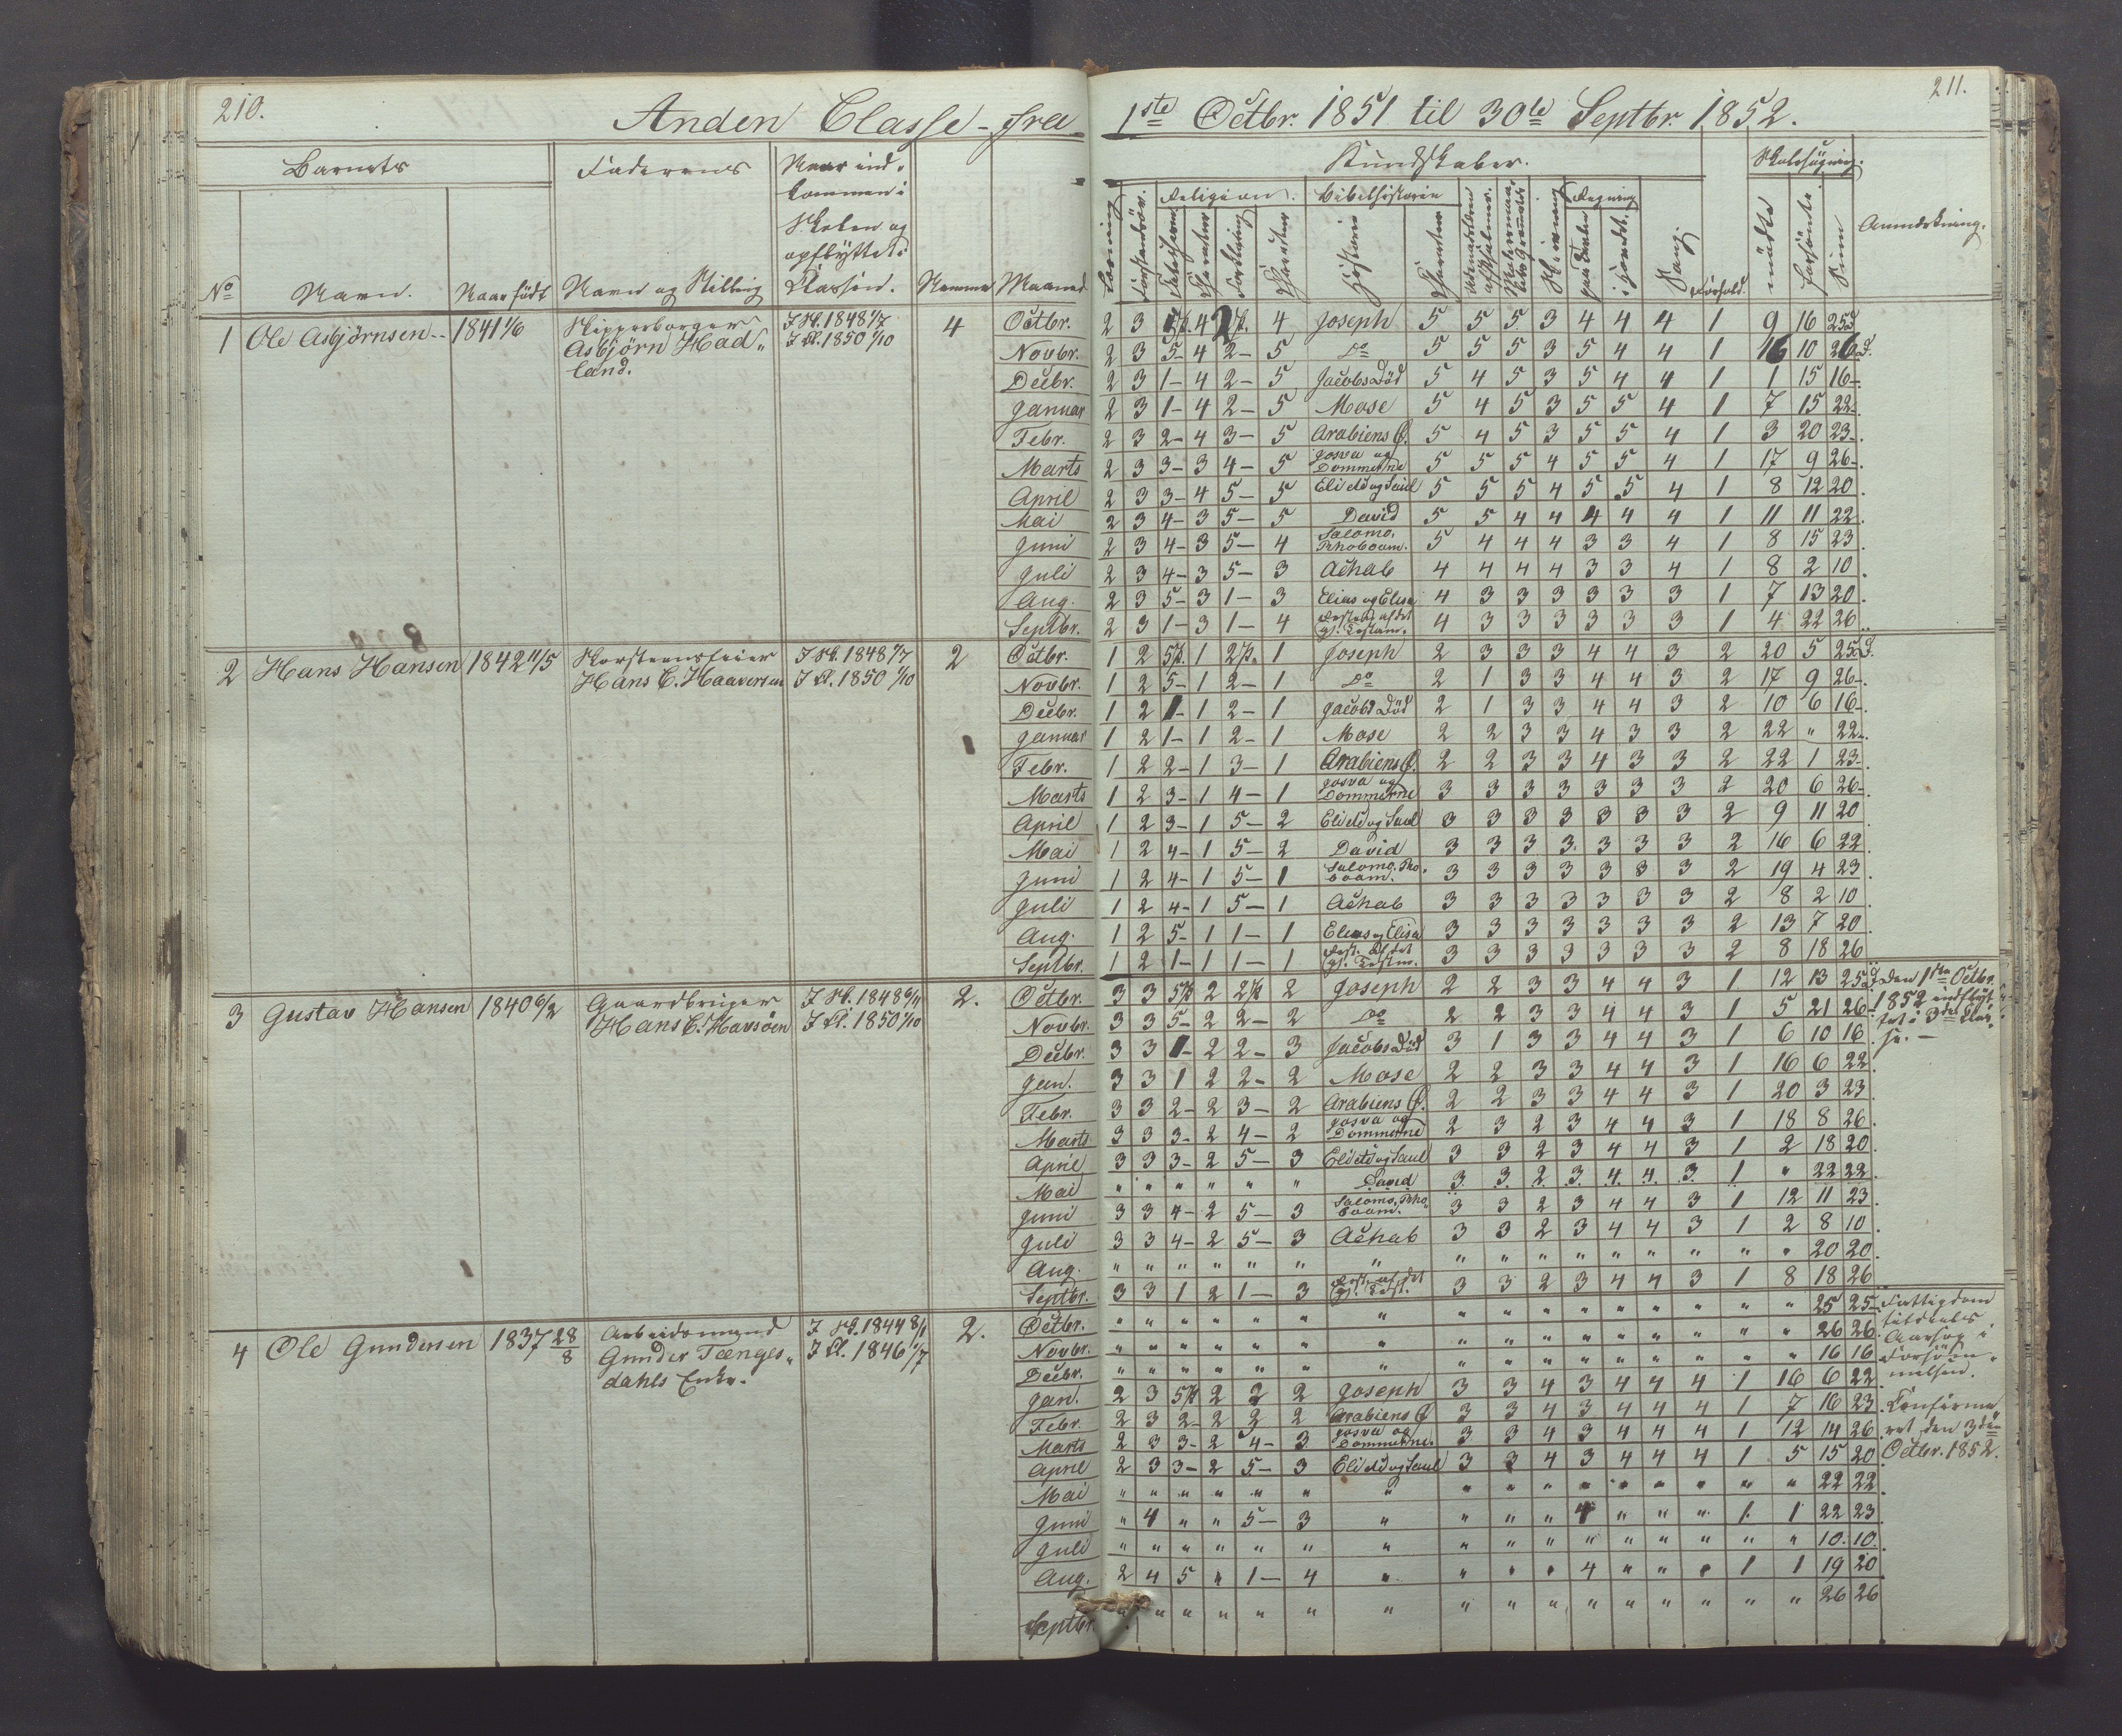 210.
Anden Classe - fra
Barnets Faderens Naar ind-
kommen i
Skolen og
opflyttet i
No Navn. Naar født Navn og Stilling Classen. Nummer Maaned
1 Ole Asbjörnsen 1841 1/6 Skipperborger I Sk. 1848 1/7 4 Octbr.
Asbjörn Had- I Cl. 1850 1/10 Novbr.
land. Decbr.
Januar
Febr.
Marts
April
Mai
Juni
Juli
Aug.
Septbr.
2 Hans Hansen 1842 11/5 Skorsteensfeier I Sk. 1848 1/7 2 Octbr.
Hans C. Haaversen I Cl. 1850 1/10 Novbr.
Decbr.
Januar
Febr.
Marts
April
Mai
Juni
Juli
Aug.
Septbr.
3 Gustav Hansen 1840 6/2 Gaardbruger I Sk. 1848 6/11 2. Octbr.
Hans C. Havsöen I Cl. 1850 1/10 Novbr.
Decbr.
Jan.
Febr.
Marts
April
Mai
Juni
Juli
Aug.
Septbr.
4 Ole Gundersen 1837 28/8 Arbeidsmand I Sk. 1844 8/1 2. Octbr.
Gunder Tænges- I Cl. 1846 1/7 Novbr.
dahls Enke. Decbr.
Jan.
Febr.
Marts
April
Mai
Juni
Juli
Aug.
Septbr.
211.
1ste Octbr. 1851 til 30te Septbr. 1852.
Kundskaber. Skolesøgning.
Religion. Bibelhistorie Regning
Læsning Forklaring Historie Skrivning Sang. Forhold mødte forsømte Sum Anmærkning.
2 3 5 P. 4 2 P. 4 Joseph 5 5 5 3 4 4 4 1 9 16 25 D
2 3 5 - 4 2 - 5 Do 5 5 5 3 5 4 4 1 16 10 26 D.
2 3 1 - 4 2 - 5 Jacobs Död 5 4 5 3 5 4 4 1 1 15 16 -
2 3 1 - 4 2 - 5 Mose 5 4 5 3 5 5 4 1 7 15 22 -
2 3 2 - 4 3 - 5 Arabiens Ö. 5 4 5 3 5 5 4 1 3 20 23 -
2 3 3 - 3 4 - 5 Josva og Dommerne 5 5 5 4 5 5 4 1 17 9 26 -
2 3 3 - 4 5 - 5 Eli etc og Saul 5 5 5 4 5 5 4 1 8 12 20
2 3 4 - 3 5 - 5 David 5 5 4 4 4 4 4 1 11 11 22
2 3 4 - 3 5 - 4 Salomo. Rhoboam. 5 4 4 4 3 3 4 1 8 15 23
2 3 4 - 3 5 - 3 Achab 4 4 4 4 3 3 4 1 8 2 10
2 3 5 - 3 1 - 3 Elias og Elisa 4 3 3 3 3 3 3 1 7 13 20
2 3 1 - 3 1 - 4 Resten af det gl. Testam. 4 3 3 3 3 3 3 1 4 22 26
1 2 5 P. 1 2 P. 1 Joseph 2 3 3 3 4 4 3 2 20 5 25 D.
1 2 5 - 1 2 - 1 Do 2 1 3 3 4 4 3 2 17 9 26 -
1 2 1 - 1 2 - 1 Jacobs Död 2 1 3 3 4 4 3 2 10 6 16 -
1 2 1 - 1 2 - 1 Mose 2 2 3 3 4 3 3 2 22 " 22 -
1 2 2 - 1 3 - 1 Arabiens Ö. 2 2 3 3 4 3 3 2 22 1 23 -
1 2 3 - 1 4 - 1 Josva og Dommerne 3 3 3 3 3 3 3 2 20 6 26 -
1 2 3 - 1 5 - 2 Eli etc og Saul 3 3 3 3 3 3 3 2 9 11 20
1 2 4 - 1 5 - 2 David 3 3 3 3 3 3 3 2 16 6 22
1 2 4 - 1 5 - 1 Salomo. Rhoboam. 3 3 3 3 3 3 3 2 19 4 23
1 2 4 - 1 5 - 1 Achab 3 3 3 3 3 3 3 2 8 2 10
1 2 5 - 1 1 - 1 Elias og Elisa 3 3 3 3 3 3 3 2 13 7 20
1 2 1 - 1 1 - 1 Rest. af det gl. Testm. 3 3 3 3 3 3 3 2 8 18 26
3 3 5 P 2 2 P. 2 Joseph 2 2 3 3 4 4 3 1 12 13 25 D. Den 1ste Octbr.
3 3 5 - 2 2 - 2 Do 2 2 3 3 4 4 3 1 5 21 26 - 1852 indflyt-
3 3 1 - 2 2 - 3 Jacobs Död 3 1 3 3 4 4 3 1 6 10 16 tet i 3die Clas-
3 3 1 2 2 - 2 Mose 2 2 3 3 4 4 3 1 16 6 22 se. -
3 3 2 - 2 3 - 2 Arabiens Ö. 2 2 3 3 4 4 3 1 20 3 23
3 3 3 - 2 4 - 2 Josva og Dommerne 2 3 2 3 4 4 3 1 18 8 26
3 3 3 - 2 5 - 3 Eli etc og Saul 3 3 2 3 4 4 3 1 2 18 20
" " " " " " David 3 3 2 3 4 4 3 1 " 22 22
3 3 4 - 2 5 - 3 Salomo. Rhoboam. 3 3 2 3 4 4 3 1 12 11 23
3 3 4 - 2 5 - 3 Achab 3 3 2 3 4 4 3 1 2 8 10
" " " " " " " " " " " " " " " " 20 20
3 3 1 2 1 - 3 Rest. af det gl. Test. 3 3 2 3 4 4 3 1 8 18 26
" " " " " " " " " " " " " " " " 25 25 - Fattigdom
" " " " " " " " " " " " " " " " 26 26
" " " " " " " " " " " " " " " " 16 16 Aarsag i Forsöm-
2 3 5 P 2 2 2 Joseph 3 3 4 3 4 4 4 1 16 6 22 melsen.
2 3 2 - 2 2 2 Arabiens Ö 3 3 4 3 4 4 4 1 7 16 23 Confirme-
2 3 3 - 2 4 - 3 Josva og Dommerne. 3 3 4 3 4 4 4 1 12 14 26 ret den 3die
2 3 3 - 2 5 - 3 Eli etc og Saul 3 3 4 3 4 4 4 1 5 15 20 Octbr. 1852.
" " " " " " " " " " " " " " " " 22 22
" 4 " " 5 - 3 " " " " " 4 " " " 1 1 22 23
" " " " " " " " " " " " " " " " 10 10
2 4 5 " 1 - 4 " " " " " 4 " " " 1 1 19 20
" " " " " " " " " " " " " " " " 26 26